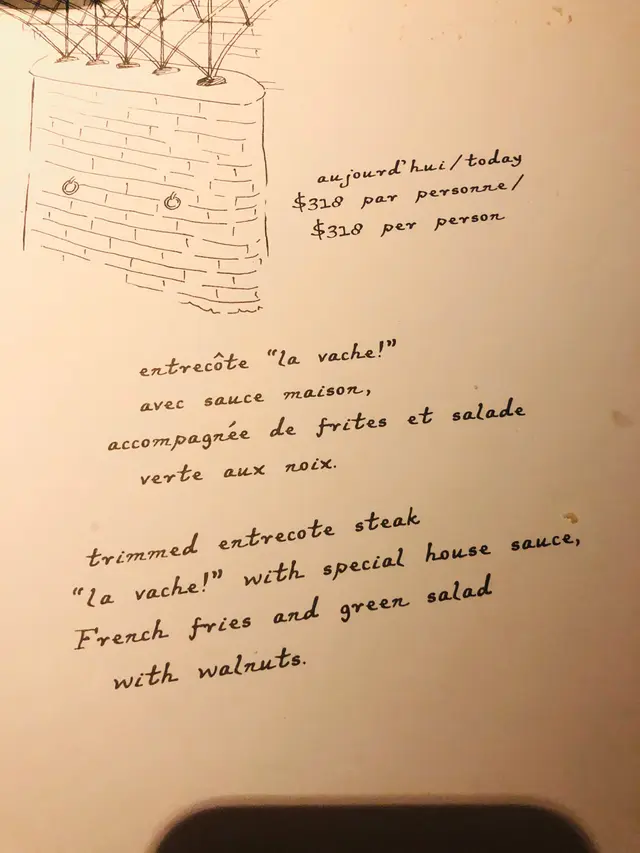 aujourd'hui/today
$318 par personne/
$318 per person
entrecôte "la vache!"
avec sauce maison,
accompagnée de frites et salade
verte aux noix.
trimmed entrecote steak
"la vache!" with special house sauce,
French fries and green salad
with walnuts.